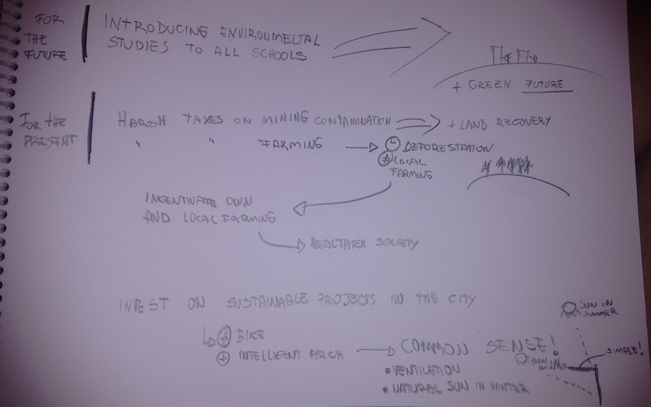 FOR
THE
FUTURE
INTRODUCING ENVIRONMELTAL
STUDIES TO ALL SCHOOLS
+ GREEN FUTURE
FOR THE
PRESENT
HARSH TAXES ON MINING CONTAMINATION
+ LAND RECOVERY
" " FARMING
- DEFORESTATION
+ LOCAL
FARMING
INCENTIVATE OWN
AND LOCAL FARMING
HEALTHIER SOCIETY
INVEST ON SUSTAINABLE PROJECTS IN THE CITY
+ BIKE
+ INTELLIGENT ARCH
COMMON SENSE!
• VENTILATION
• NATURAL SUN IN WINTER
SUN IN
SUMMER
SIMPLE!
SUN
WINTER